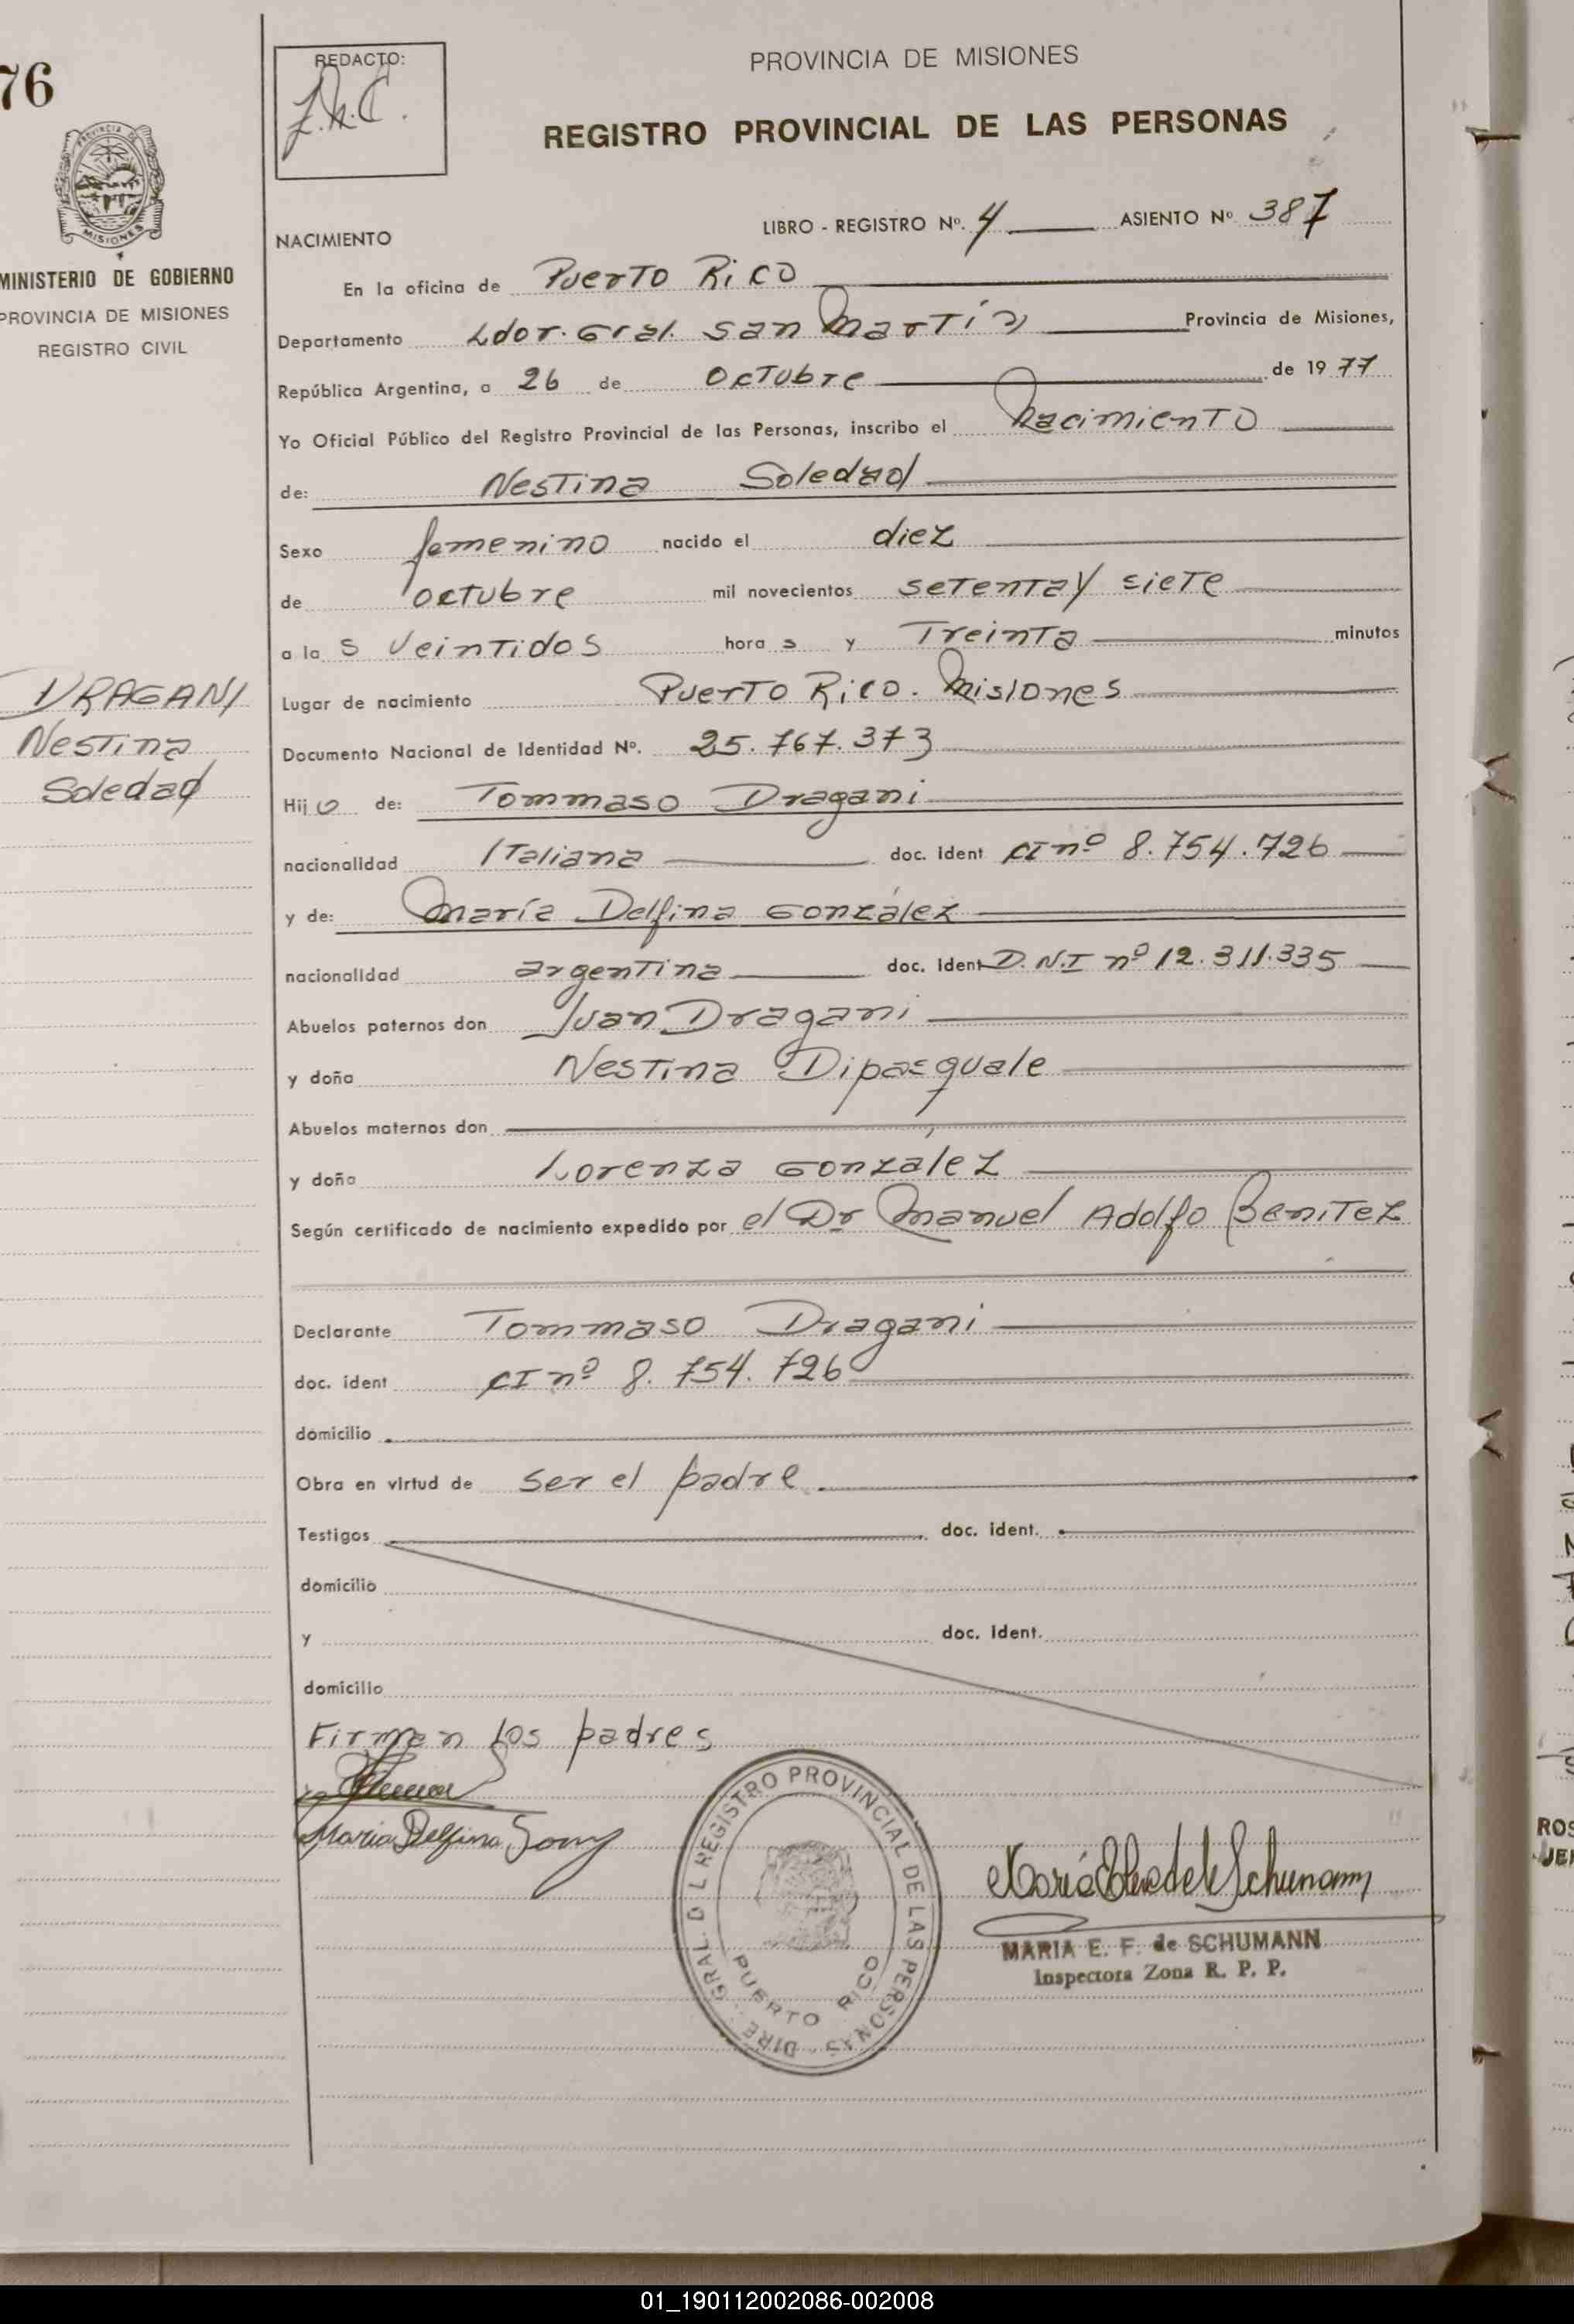 76
REDACTO:
PROVINCIA DE MISIONES
REGISTRO PROVINCIAL DE LAS PERSONAS
MISIONES
MINISTERIO DE GOBIERNO
PROVINCIA DE MISIONES
REGISTRO CIVIL
NACIMIENTO
LIBRO - REGISTRO Nº. 4 ASIENTO Nº 387
En la oficina de Puerto Rico
Departamento Ldor. Gral. San Martín Provincia de Misiones,
República Argentina, a 26 de Octubre de 1977
Yo Oficial Público del Registro Provincial de las Personas, inscribo el Nacimiento
de: Nestina Soledad
Sexo femenino nacido el diez
de octubre mil novecientos setenta y siete
a las veintidos horas y Treinta minutos
Lugar de nacimiento Puerto Rico. Misiones
DRAGANI
Nestina
Soledad
Documento Nacional de Identidad Nº. 25.767.373
Hijo de: Tommaso Dragani
nacionalidad Italiana doc. ident CI nº 8.754.726
y de: María Delfina González
nacionalidad argentina doc. ident D.N.I nº 12.311.335
Abuelos paternos don Juan Dragani
y doña Nestina Dipasquale
Abuelos maternos don
y doña Lorenza González
Según certificado de nacimiento expedido por el Dr Manuel Adolfo Benitez
Declarante Tommaso Dragani
doc. ident CI nº 8.754.726
domicilio
Obra en virtud de ser el padre
Testigos doc. ident.
domicilio
y doc. ident.
domicilio
Firman los padres
Maria Delfina
DIRE GRAL. D L REGISTRO PROVINCIAL DE LAS PERSONAS
PUERTO RICO
MARIA E. F. de SCHUMANN
Inspectora Zona R. P. P.
01_190112002086-002008